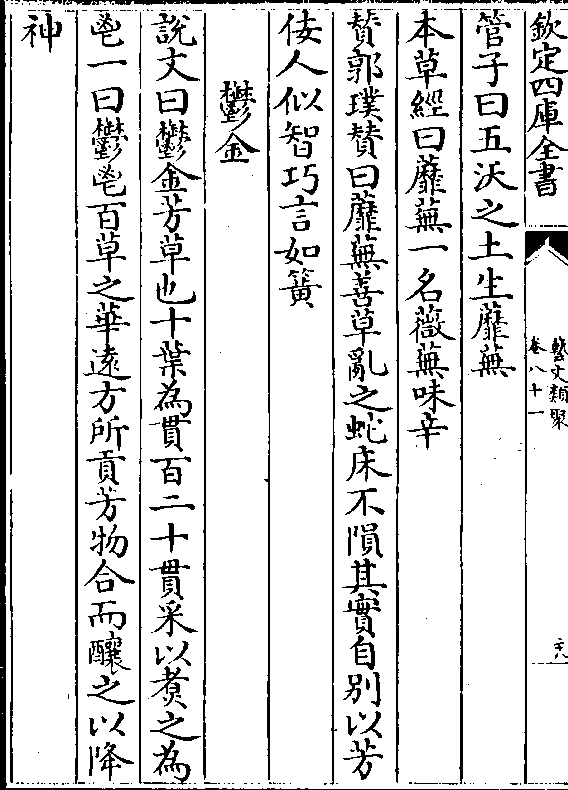 欽定四庫全書
藝文類聚
卷八十一
管子曰五沃之土生蘼蕪
本草經曰蘼蕪一名薇蕪味辛
賛郭璞賛曰蘼蕪善草亂之蛇床不隕其實自别以芳
佞人似智巧言如簧
鬱金
說文曰鬱金芳草也十葉為貫百二十貫采以煑之為
鬯一曰鬱鬯百草之華遠方所貢芳物合而釀之以降
神